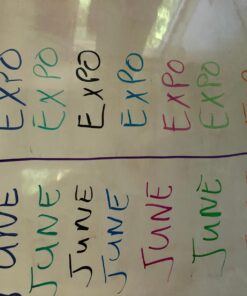 JUNE EXPO
JUNE EXPO
JUNE EXPO
JUNE EXPO
JUNE EXPO
JUNE EXPO